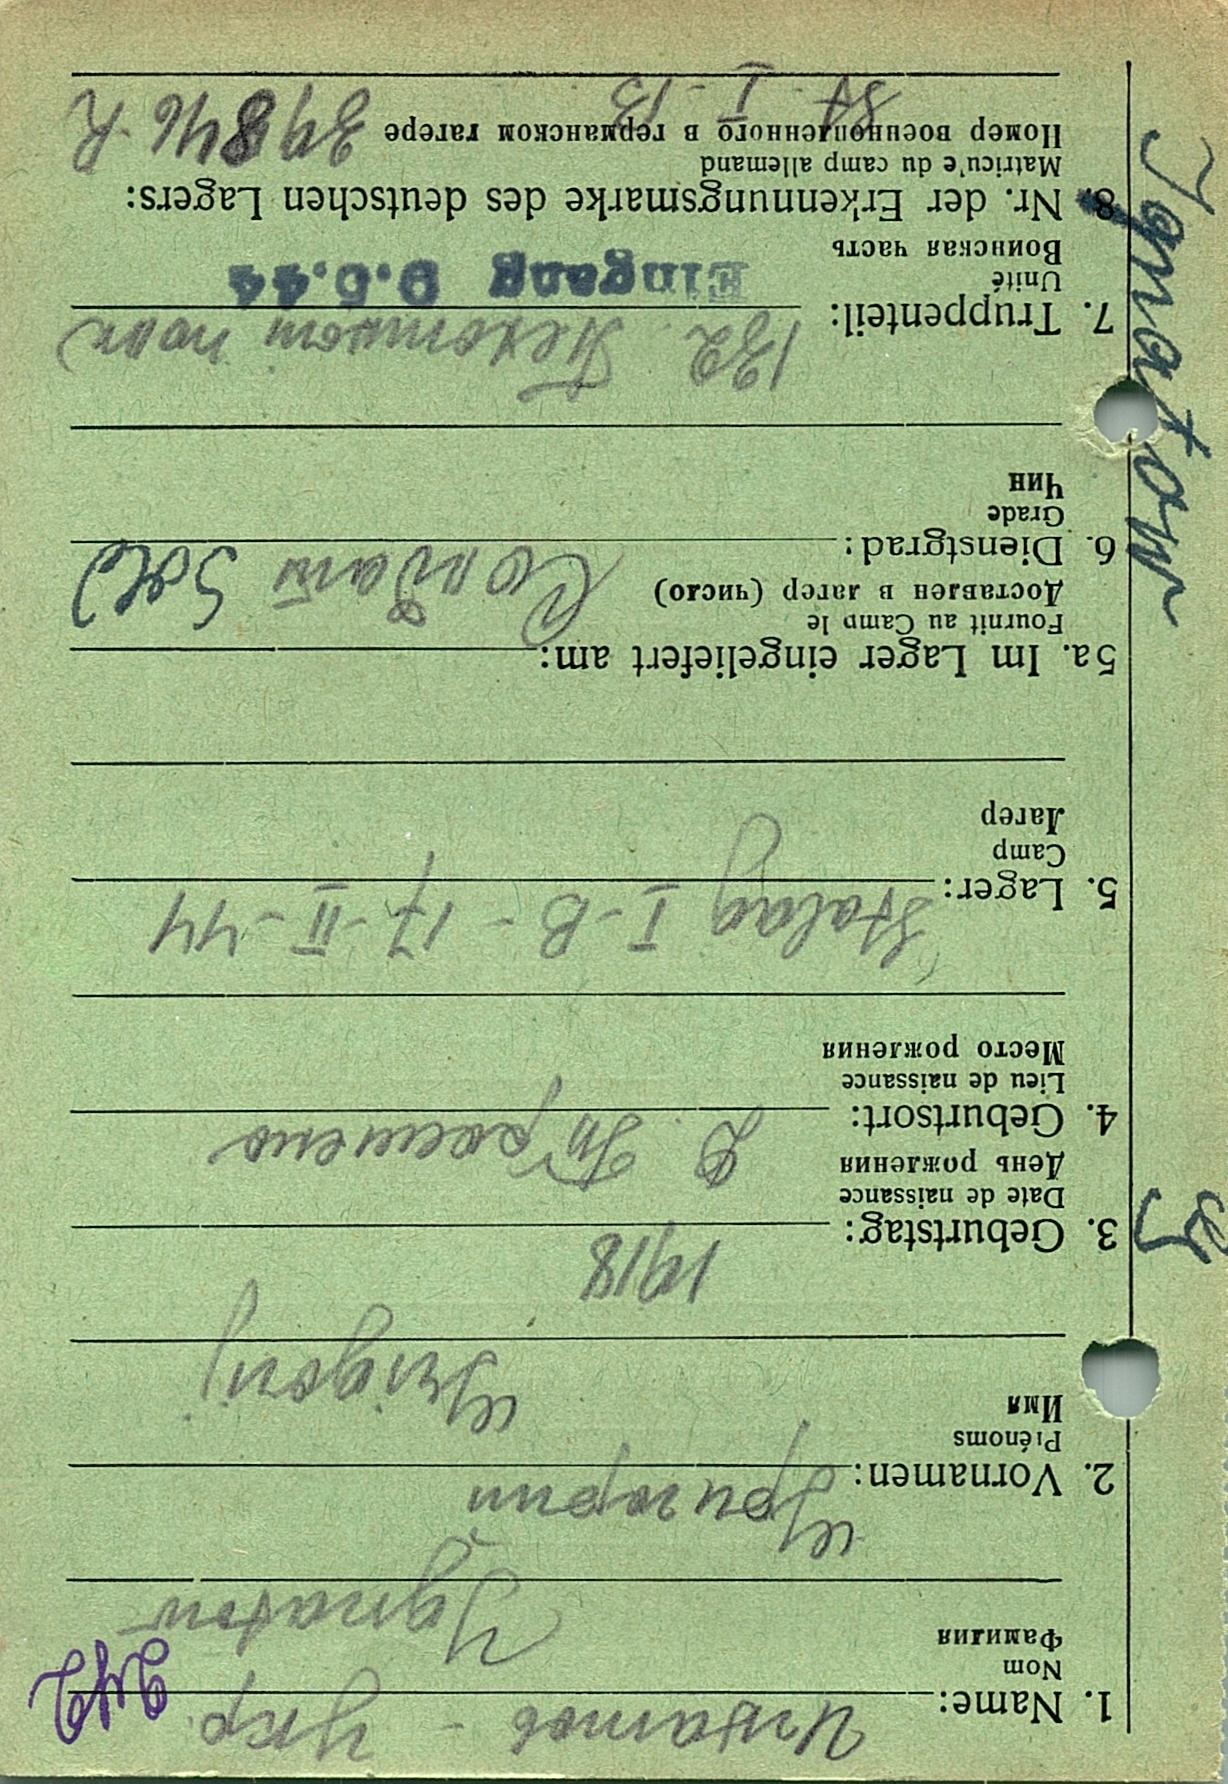 Игнатов - Укр. 242
1. Name:
Nom
Фамилия
Ignatow
2. Vornamen:
Григории
Prénoms
Имя
Grigorij
3. Geburtstag:
1918
Date de naissance
День рождения
4. Geburtsort:
Д.
Lieu de naissance
Место рождения
5. Lager:
Stalag I-B - 17-II-44
Camp
Лагерь
5a. Im Lager eingeliefert am:
Fournit au Camp le
Доставлен в лагер (число)
6. Dienstgrad:
Солдат Sold
Grade
Чин
7. Truppenteil:
132 Пехотном полк
Unité
Воинская часть
Eingang 9.5.44
8. Nr. der Erkennungsmarke des deutschen Lagers:
Matricu'e du camp allemand
Номер военнопленного в германском лагере
39846-R
I-B
Ignatow